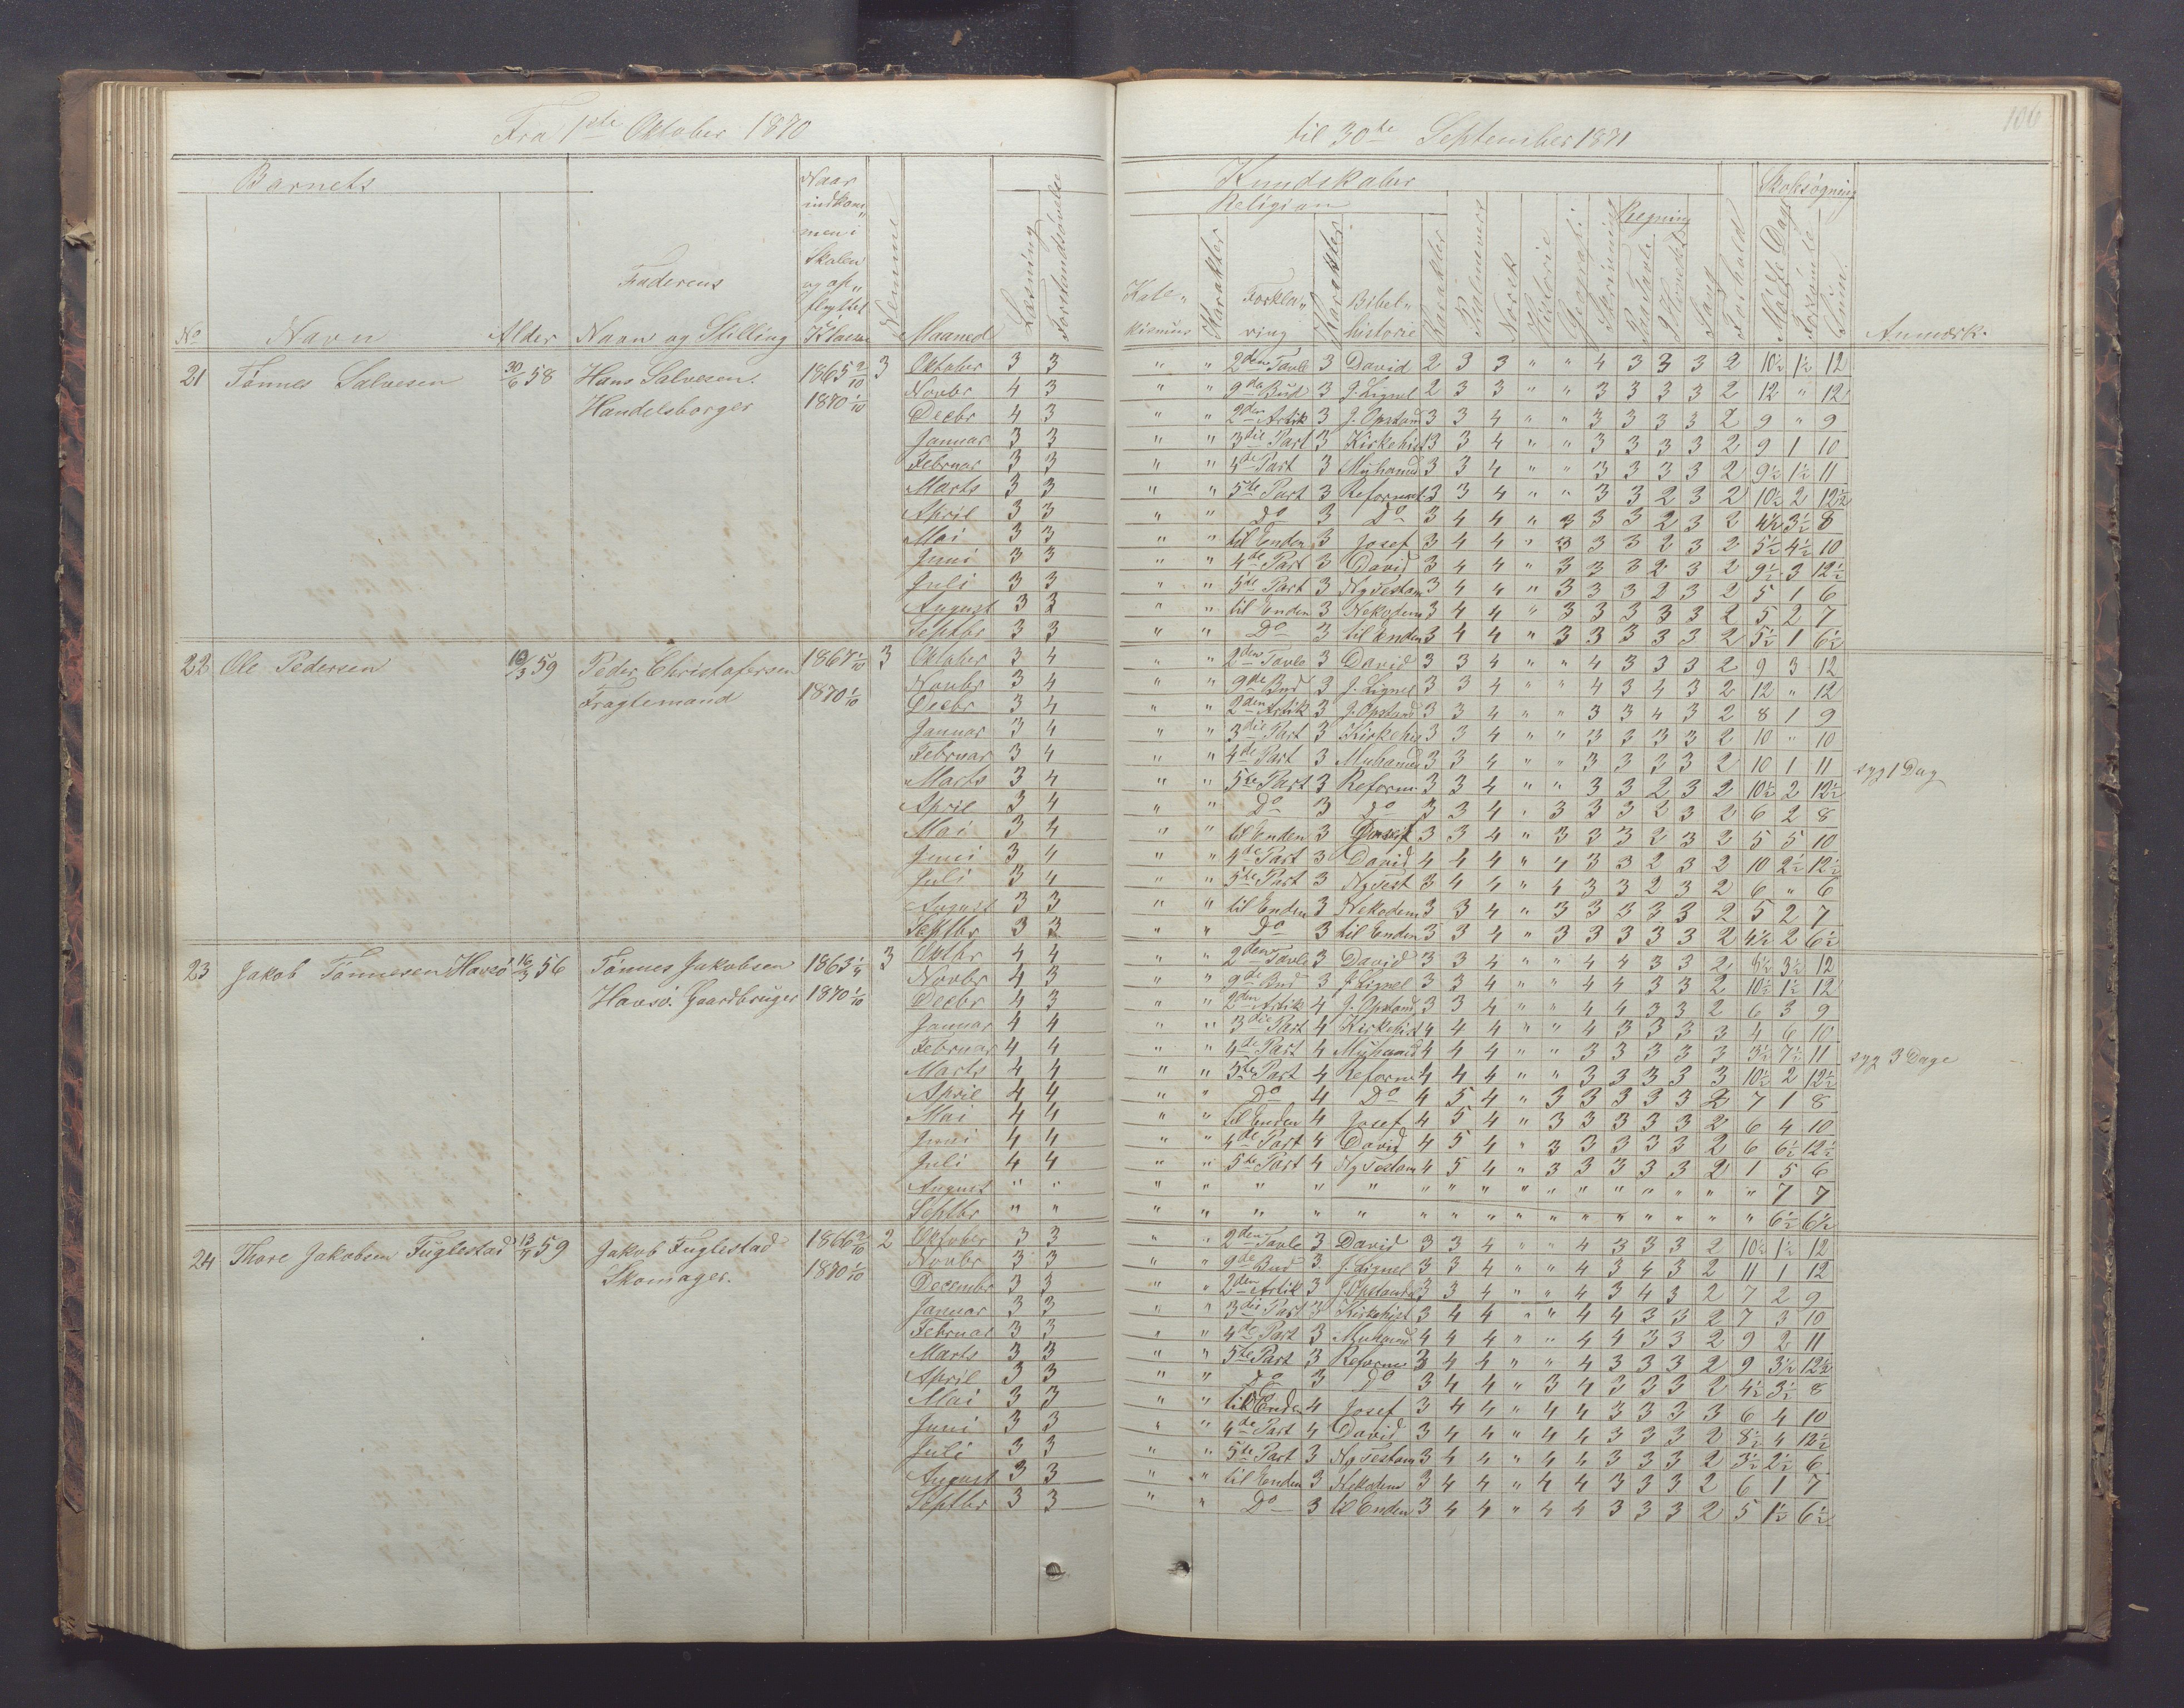 Fra 1ste Oktober 1870
til 30te September 1871
106
Barnets
No Navn Alder
Faderens
Navn og Stilling
Naar
indkom„
men i
Skolen
og op„
flyttet
i
Klasse
Nemme
Maaned
Læsning
Forstandsøvelse
Kundskaber
Religion
Kate„
kismus
Karakter
Forkla„
ring
Karakter
Bibel„
historie
Karakter
Salmevers
Norsk
Historie
Geografi
Skrivning
Regning
Paa Tavle
I Hovedet
Sang
Forhold
Skolesøgning
Mødte Dage
Forsømte
Sum.
Anmærk.
21 Tønnes Salvesen 30/6 58 Hans Salvesen. 1865 2/10 3
Handelsborger 1870 1/10
Oktober 3 3 „ „ 2den Tavle 3 David 2 3 3 „ „ 4 3 3 3 2 10½ 1½ 12
Novbr 4 3 „ „ 9de Bud 3 J. Lignel 2 3 3 „ „ 3 3 3 3 2 12 „ 12
Decbr 4 3 „ „ 2den Artik 3 J. Opstand 3 3 4 „ „ 3 3 3 3 2 9 „ 9
Januar 3 3 „ „ 3die Part 3 Kirkehist 3 3 4 „ „ 3 3 3 3 2 9 1 10
Februar 3 3 „ „ 4de Part 3 Muhamed 3 3 4 „ „ 3 3 3 3 2 9½ 1½ 11
Marts 3 3 „ „ 5te Part 3 Reformat. 3 3 4 „ „ 3 3 2 3 2 10½ 2 12½
April 3 3 „ „ Do 3 Do 3 4 4 „ 3 3 3 2 3 2 4½ 3½ 8
Mai 3 3 „ „ til Enden 3 Josef 3 4 4 „ 3 3 3 2 3 2 5½ 4½ 10
Juni 3 3 „ „ 4de Part 3 David 3 4 4 „ 3 3 3 2 3 2 9½ 3 12½
Juli 3 3 „ „ 5te Part 3 Ny Testam 3 4 4 „ 3 3 3 2 3 2 5 1 6
August 3 3 „ „ til Enden 3 Nekodem 3 4 4 „ 3 3 3 3 3 2 5 2 7
Septbr 3 3 „ „ Do 3 til Enden 3 4 4 „ 3 3 3 3 3 2 5½ 1 6½
22 Ole Pedersen 10/3 59 Peder Christofersen 1867 1/10 3
Fragtemand 1870 1/10
Oktober 3 4 „ „ 2den Tavle 3 David 3 3 4 „ „ 4 3 3 3 2 9 3 12
Novbr 3 4 „ „ 9de Bud 3 J. Lignel 3 3 4 „ „ 4 3 4 3 2 12 „ 12
Decbr 3 4 „ „ 2den Artik 3 J. Opstand 3 3 4 „ „ 3 3 4 3 2 8 1 9
Januar 3 4 „ „ 3die Part 3 Kirkehis 3 3 4 „ „ 3 3 3 3 2 10 „ 10
Februar 3 4 „ „ 4de Part 3 Muhamed 3 3 4 „ „ 3 3 3 3 2 10 1 11 syg 1 Dag
Marts 3 4 „ „ 5te Part 3 Reform. 3 3 4 „ „ 3 3 2 3 2 10½ 2 12½
April 3 4 „ „ Do 3 Do 3 3 4 „ 3 3 3 2 3 2 6 2 8
Mai 3 4 „ „ til Enden 3 Josef 3 3 4 „ 3 3 3 2 3 2 5 5 10
Juni 3 4 „ „ 4de Part 3 David 4 4 4 „ 4 3 3 2 3 2 10 2½ 12½
Juli 3 4 „ „ 5te Part 3 Ny Test 3 4 4 „ 4 3 3 2 3 2 6 „ 6
August 3 3 „ „ til Enden 3 Nekodem 3 3 4 „ 3 3 3 3 3 2 5 2 7
Septbr 3 3 „ „ Do 3 til Enden 3 3 4 „ 3 3 3 3 3 2 4½ 2 6½
23 Jakob Tønnesen Havsø 16/3 56 Tønnes Jakobsen 1863 1/4 3
Havsø. Gaardbruger 1870 1/10
Oktbr 4 4 „ „ 2den Tavle 3 David 3 3 4 „ „ 4 4 3 3 2 8½ 3½ 12
Novbr 4 3 „ „ 9de Bud 3 J. Lignel 3 3 4 „ „ 4 4 3 3 2 10½ 1½ 12
Decbr 4 3 „ „ 2den Artik 4 J. Opstand 3 3 4 „ „ 4 4 3 3 2 6 3 9
Januar 4 4 „ „ 3die Part 4 Kirkehist 4 4 4 „ „ 4 3 3 3 3 4 6 10
Februar 4 4 „ „ 4de Part 4 Muhamed 4 4 4 „ „ 3 3 3 3 3 3½ 7½ 11 syg 3 Dage
Marts 4 4 „ „ 5te Part 4 Reform 4 4 4 „ „ 3 3 3 3 3 10½ 2 12½
April 4 4 „ „ Do 4 Do 4 5 4 „ 3 3 3 3 3 2 7 1 8
Mai 4 4 „ „ til Enden 4 Josef 4 5 4 „ 3 3 3 3 3 2 6 4 10
Juni 4 4 „ „ 4de Part 4 David 4 5 4 „ 3 3 3 3 3 2 6 6½ 12½
Juli 4 4 „ „ 5te Part 4 Ny Testam 4 5 4 „ 3 3 3 3 3 2 1 5 6
August „ „ „ „ „ „ „ „ „ „ „ „ „ „ „ „ „ „ 7 7
Septbr „ „ „ „ „ „ „ „ „ „ „ „ „ „ „ „ „ „ 6½ 6½
24 Thore Jakobsen Fuglestad 13/4 59 Jakob Fuglestad 1866 2/10 2
Skomager. 1870 1/10
Oktober 3 3 „ „ 2den Tavle 3 David 3 3 4 „ „ 4 3 3 3 2 10½ 1½ 12
Novbr 3 3 „ „ 9de Bud 3 J. Lignel 3 3 4 „ „ 4 3 4 3 2 11 1 12
Decembr 3 3 „ „ 2den Artik 3 J. Opstand 3 3 4 „ „ 4 3 4 3 2 7 2 9
Januar 3 3 „ „ 3die Part 3 Kirkehist 3 4 4 „ „ 4 4 3 3 2 7 3 10
Februar 3 3 „ „ 4de Part 3 Muhamd 4 4 4 „ „ 4 4 3 3 2 9 2 11
Marts 3 3 „ „ 5te Part 3 Reform 3 4 4 „ „ 4 3 3 3 2 9 3½ 12½
April 3 3 „ „ Do 3 Do 3 4 4 „ 3 4 3 3 3 2 4½ 3½ 8
Mai 3 3 „ „ til Enden 4 Josef 3 4 4 „ 4 4 3 3 3 3 6 4 10
Juni 3 3 „ „ 4de Part 4 David 3 4 4 „ 4 4 3 3 3 2 8½ 4 12½
Juli 3 3 „ „ 5te Part 3 Ny Testam 3 4 4 „ 4 4 3 3 3 2 3½ 2½ 6
August 3 3 „ „ til Enden 3 Nekodem 3 4 4 „ 4 4 3 3 3 2 6 1 7
Septbr 3 3 „ „ Do 3 til Enden 3 4 4 „ 4 4 3 3 3 2 5 1½ 6½